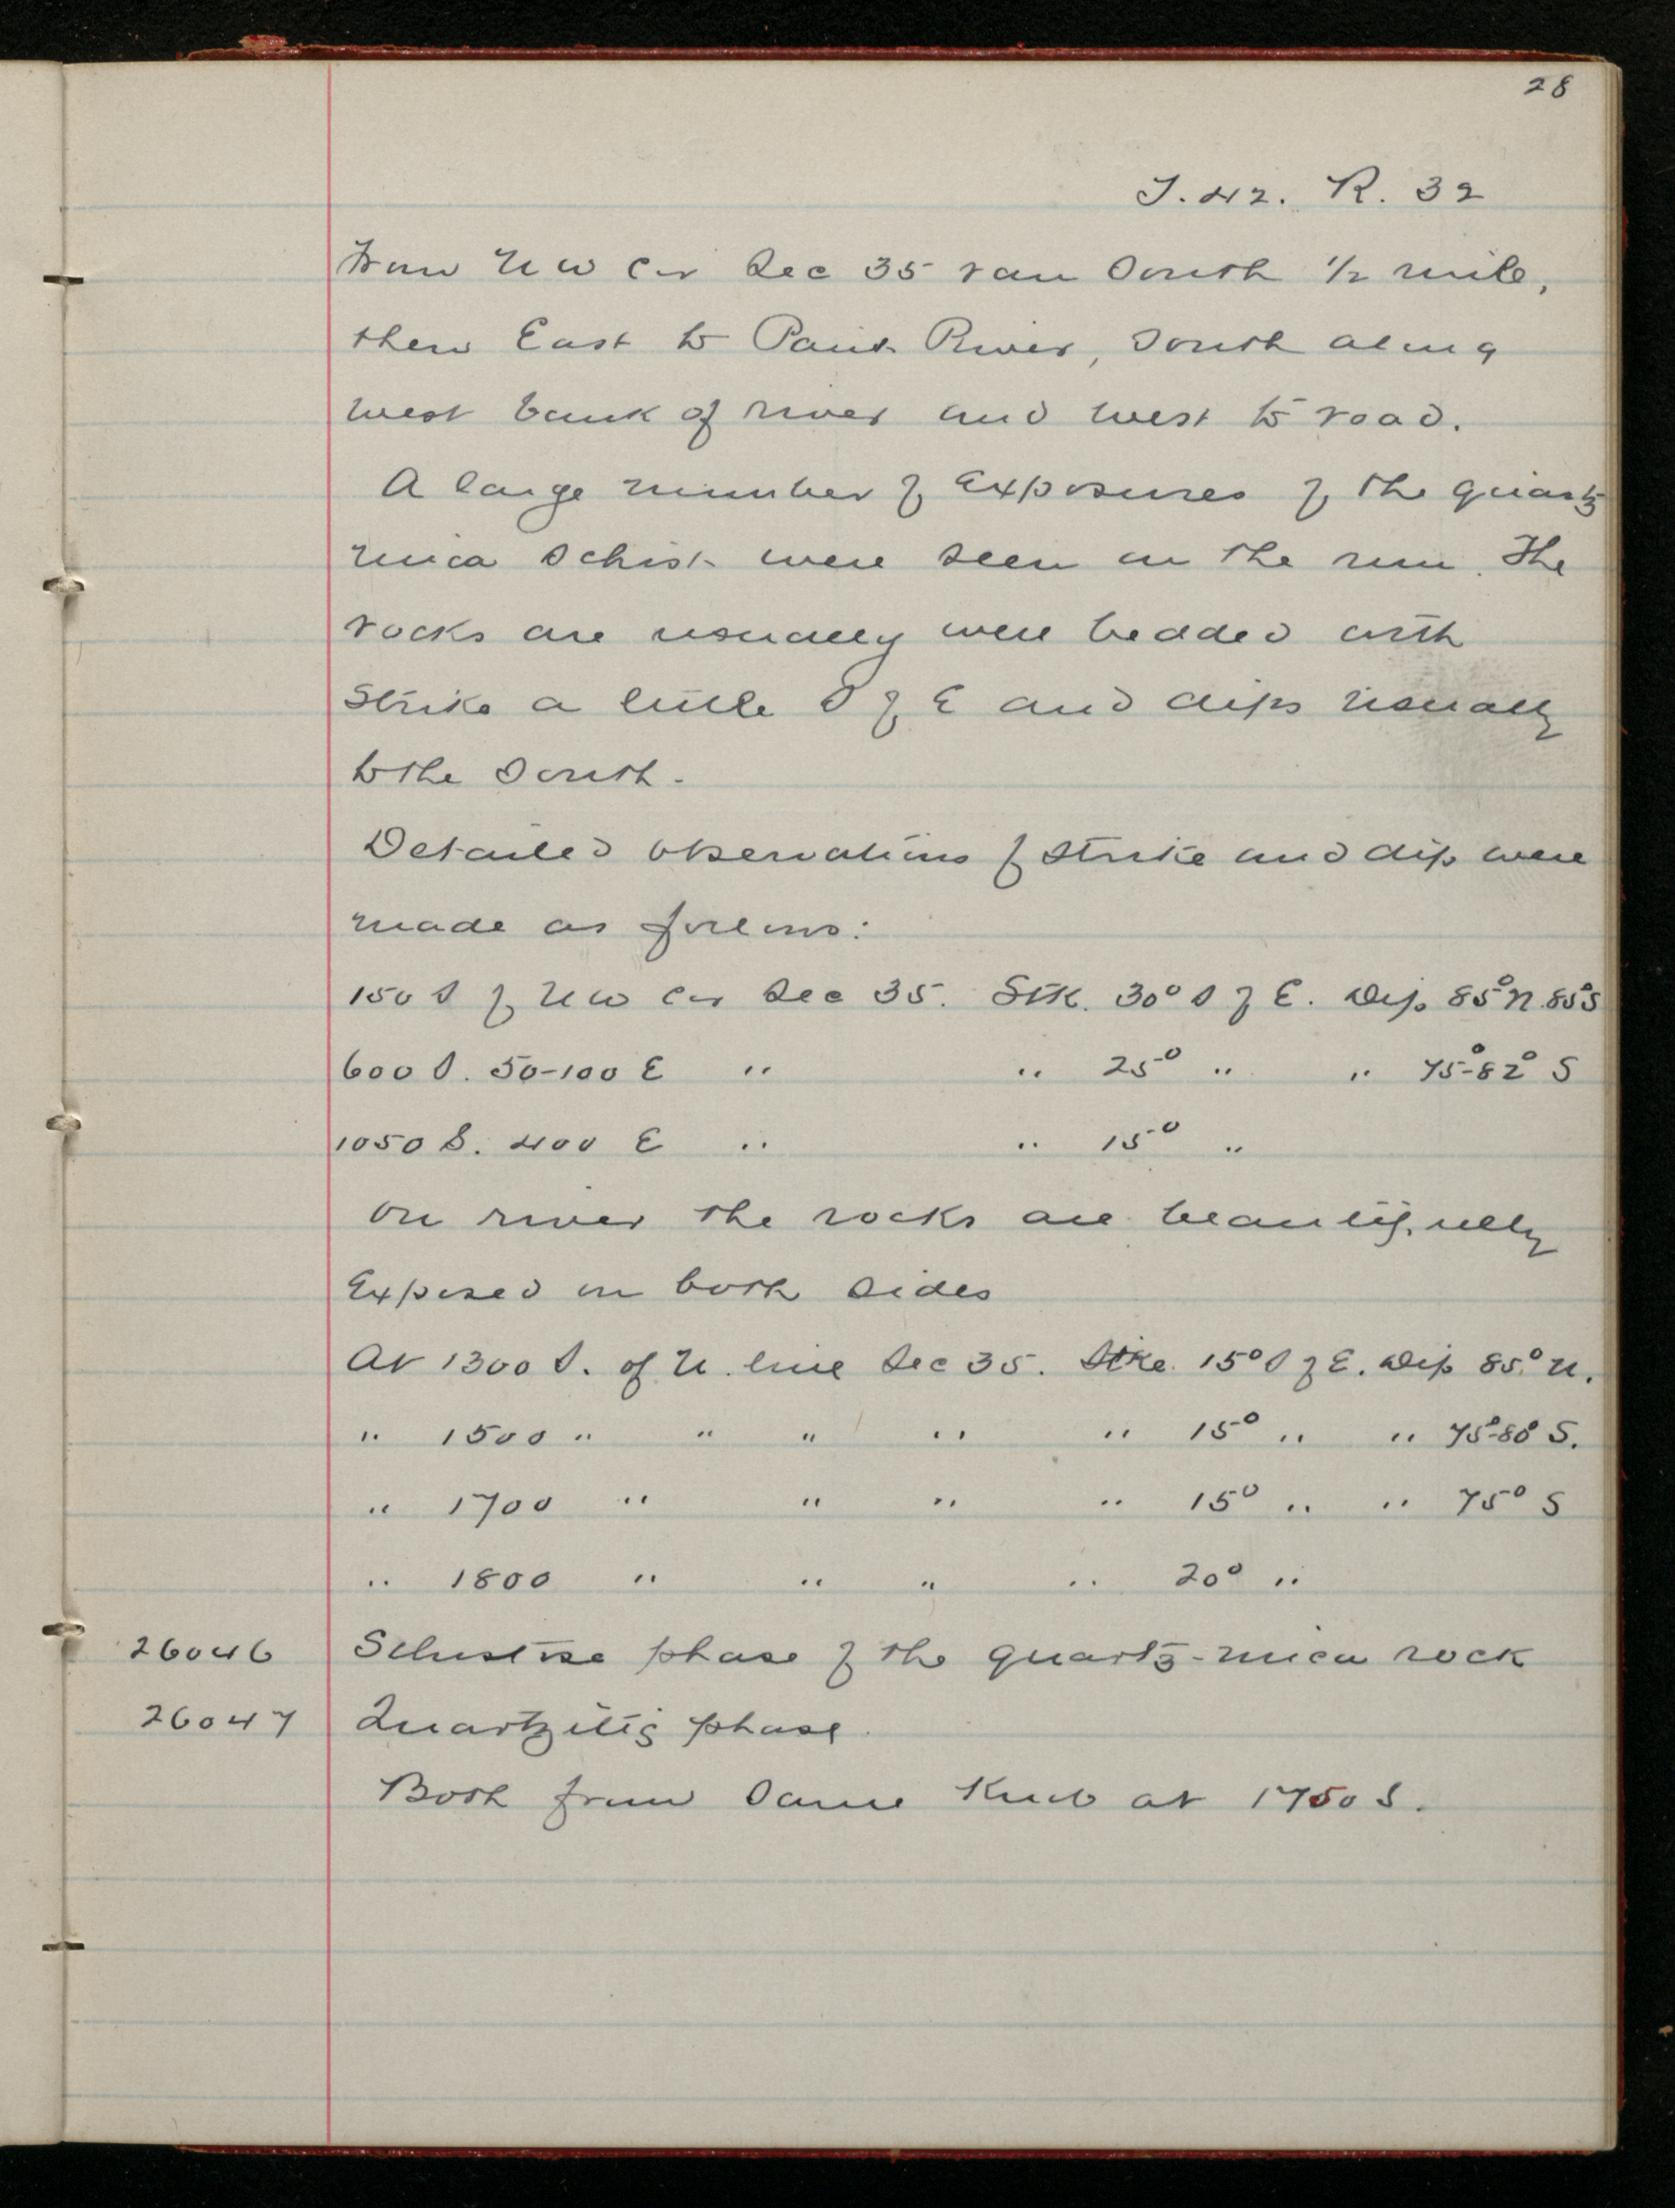 28
T. 42. R. 32
From NW Cor Sec 35 ran South 1/2 mile,
then East to Paint River, South along
west bank of river and west to road.
A large number of exposures of the quartz
mica schist were seen on the run. The
rocks are usually well bedded with
strike a little S of E and dips usually
to the South.
Detailed observations of strike and dip were
made as follows:
150 S of NW Cor Sec 35. Stk. 30° S of E. Dip 85° N. 85° S
600 S. 50-100 E " " 25° " " 75°-82° S
1050 S. 400 E " " 15° "
On river the rocks are beautifully
exposed on both sides
At 1300 S. of N. line Sec 35. Stke. 15° S of E. Dip 85° N.
" 1500 " " " " " 15° " " 75°-80° S.
" 1700 " " " " 15° " " 75° S
" 1800 " " " " 20° "
26046 Schistose phase of the quartz-mica rock
26047 Quartzitic phase.
Both from same knob at 1750 S.